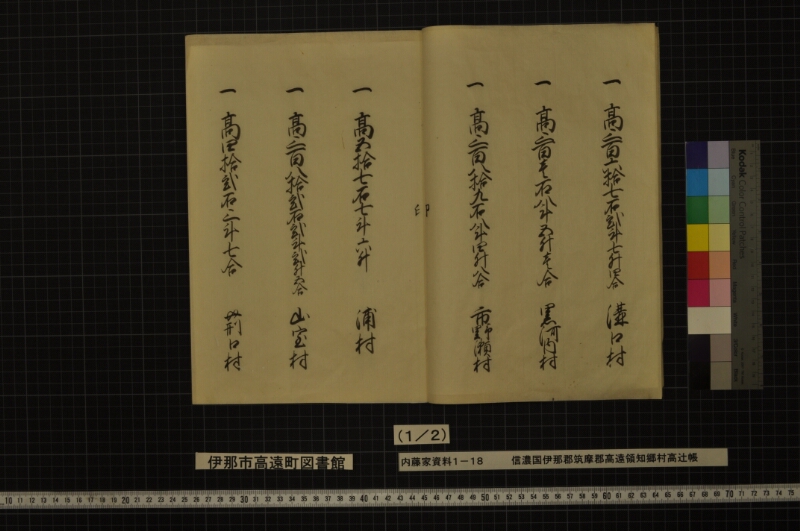 一 高三百六拾七石弐斗七升四合 溝口村
一 高三百壱石八斗五升壱合 黒河内村
一 高三百八拾九石八斗四升八合 市野瀬村
印
一 高五拾七石七斗六升 浦村
一 高三百八拾弐石弐斗弐升六合 山室村
一 高四拾弐石三斗七合 荊口村
(1/2)
伊那市高遠町図書館
内藤家資料1-18 信濃国伊那郡筑摩郡高遠領知郷村高辻帳
Kodak Color Control Patches